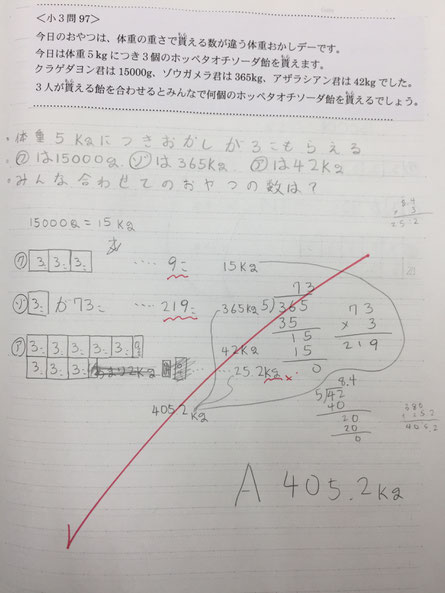 <小3問97>
今日のおやつは、体重の重さで貰える数が違う体重おかしデーです。
今日は体重5kgにつき3個のホッペタオチソーダ飴を貰えます。
クラゲダヨン君は15000g、ゾウガメラ君は365kg、アザラシアン君は42kgでした。
3人が貰える飴を合わせるとみんなで何個のホッペタオチソーダ飴を貰えるでしょう。
・体重5kgにつきおかしが3こもらえる
・クは15000g、ゾは365kg、アは42kg
・みんな合わせてのおやつの数は?
8.4
× 3
25.2
15000g=15kg
ク 3こ 3こ 3こ ‥‥ 9こ
15kg
ゾ 3こ が73こ ‥‥ 219こ
365kg
73
5)365
35
15
15
0
73
× 3
219
ア 3こ 3こ 3こ 3こ 3こ
3こ 3こ 3こ
42kg
‥‥25.2kg
8.4
5)42
40
20
20
0
405.2kg
A 405.2kg